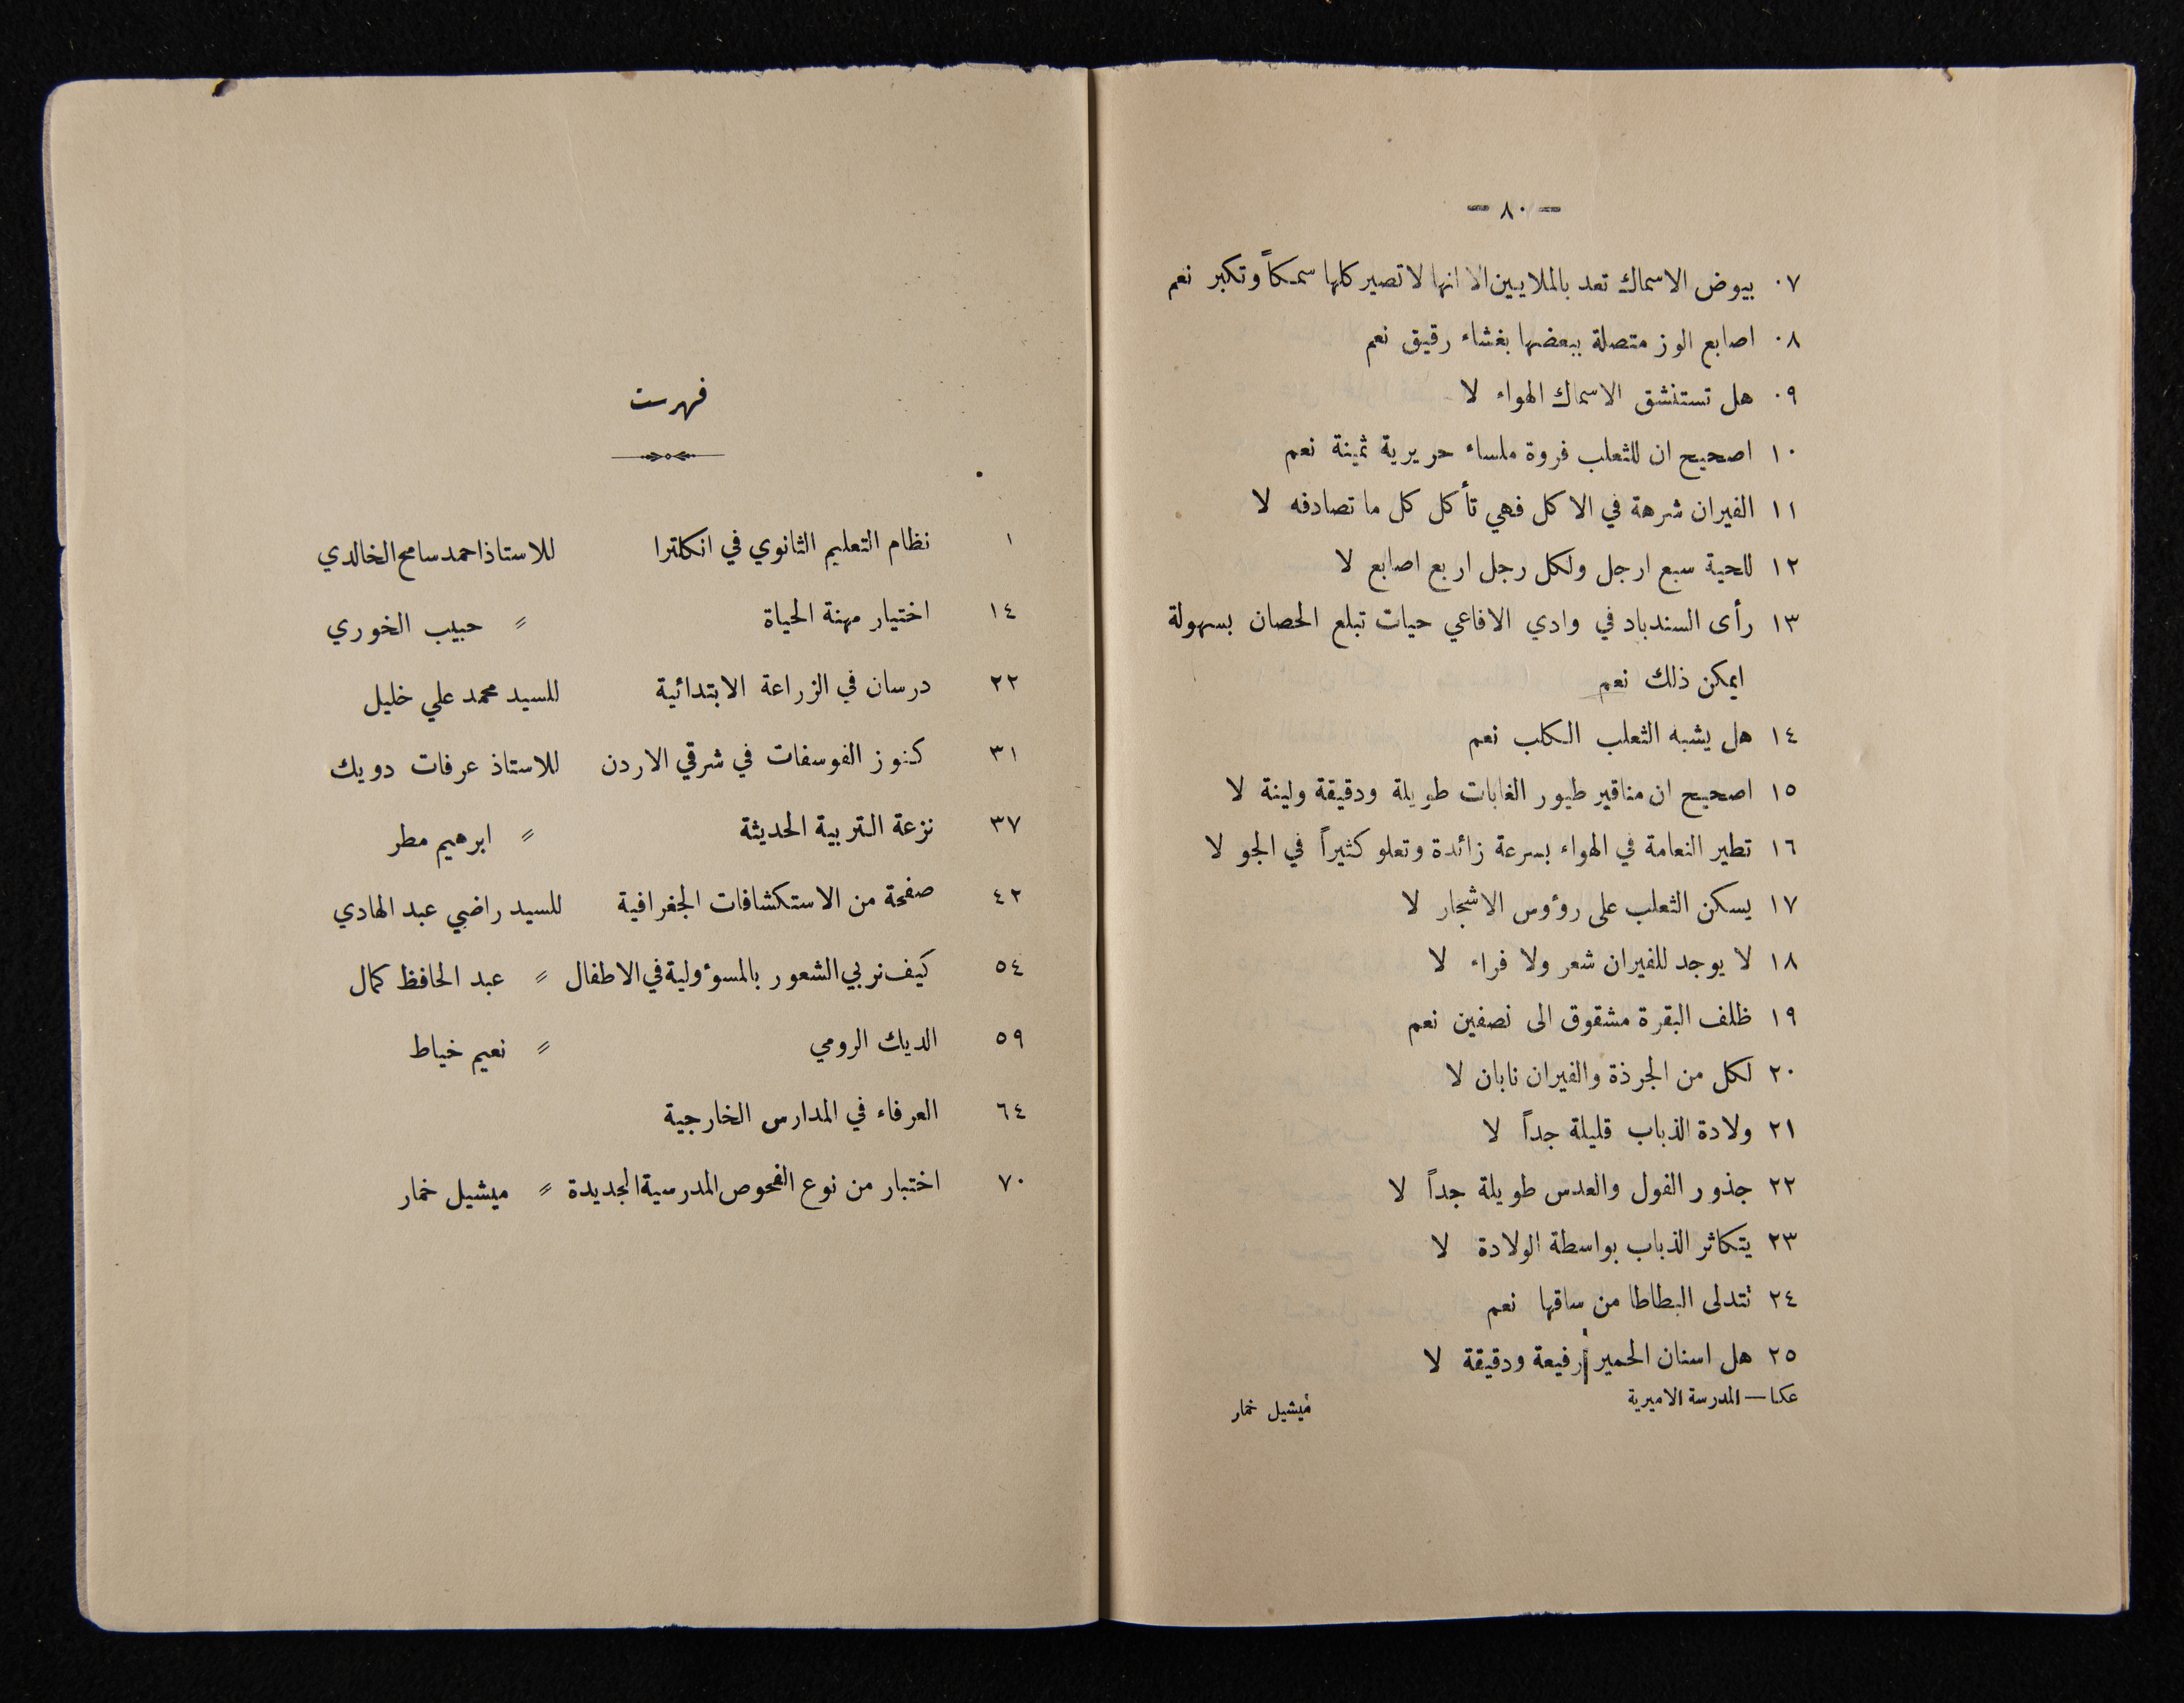 — ٨٠ —
٠٧ بيوض الاسماك تعد بالملايين الا انها لا تصير كلها سمكاً وتكبر نعم
٠٨ اصابع الوز متصلة ببعضها بغشاء رقيق نعم
٠٩ هل تستنشق الاسماك الهواء لا
١٠ اصحيح ان للثعلب فروة ملساء حريرية ثمينة نعم
١١ الفيران شرهة في الاكل فهي تأكل كل ما تصادفه لا
١٢ للحية سبع ارجل ولكل رجل اربع اصابع لا
١٣ رأى السندباد في وادي الافاعي حيات تبلع الحصان بسهولة
ايمكن ذلك نعم
١٤ هل يشبه الثعلب الكلب نعم
١٥ اصحيح ان مناقير طيور الغابات طويلة ودقيقة ولينة لا
١٦ تطير النعامة في الهواء بسرعة زائدة وتعلو كثيراً في الجو لا
١٧ يسكن الثعلب على رؤوس الاشجار لا
١٨ لا يوجد للفيران شعر ولا فراء لا
١٩ ظلف البقرة مشقوق الى نصفين نعم
٢٠ لكل من الجرذة والفيران نابان لا
٢١ ولادة الذباب قليلة جداً لا
٢٢ جذور الفول والعدس طويلة جداً لا
٢٣ يتكاثر الذباب بواسطة الولادة لا
٢٤ تتدلى البطاطا من ساقها نعم
٢٥ هل اسنان الحمير رفيعة ودقيقة لا
عكا — المدرسة الاميرية ميشيل خمار
فهرست
١ نظام التعليم الثانوي في انكلترا للاستاذ احمد سامح الخالدي
١٤ اختيار مهنة الحياة 〃 حبيب الخوري
٢٢ درسان في الزراعة الابتدائية للسيد محمد علي خليل
٣١ كنوز الفوسفات في شرقي الاردن للاستاذ عرفات دويك
٣٧ نزعة التربية الحديثة 〃 ابرهيم مطر
٤٢ صفحة من الاستكشافات الجغرافية للسيد راضي عبد الهادي
٥٤ كيف نربي الشعور بالمسؤولية في الاطفال 〃 عبد الحافظ كمال
٥٩ الديك الرومي 〃 نعيم خياط
٦٤ العرفاء في المدارس الخارجية
٧٠ اختبار من نوع الفحوص المدرسية الجديدة 〃 ميشيل خمار